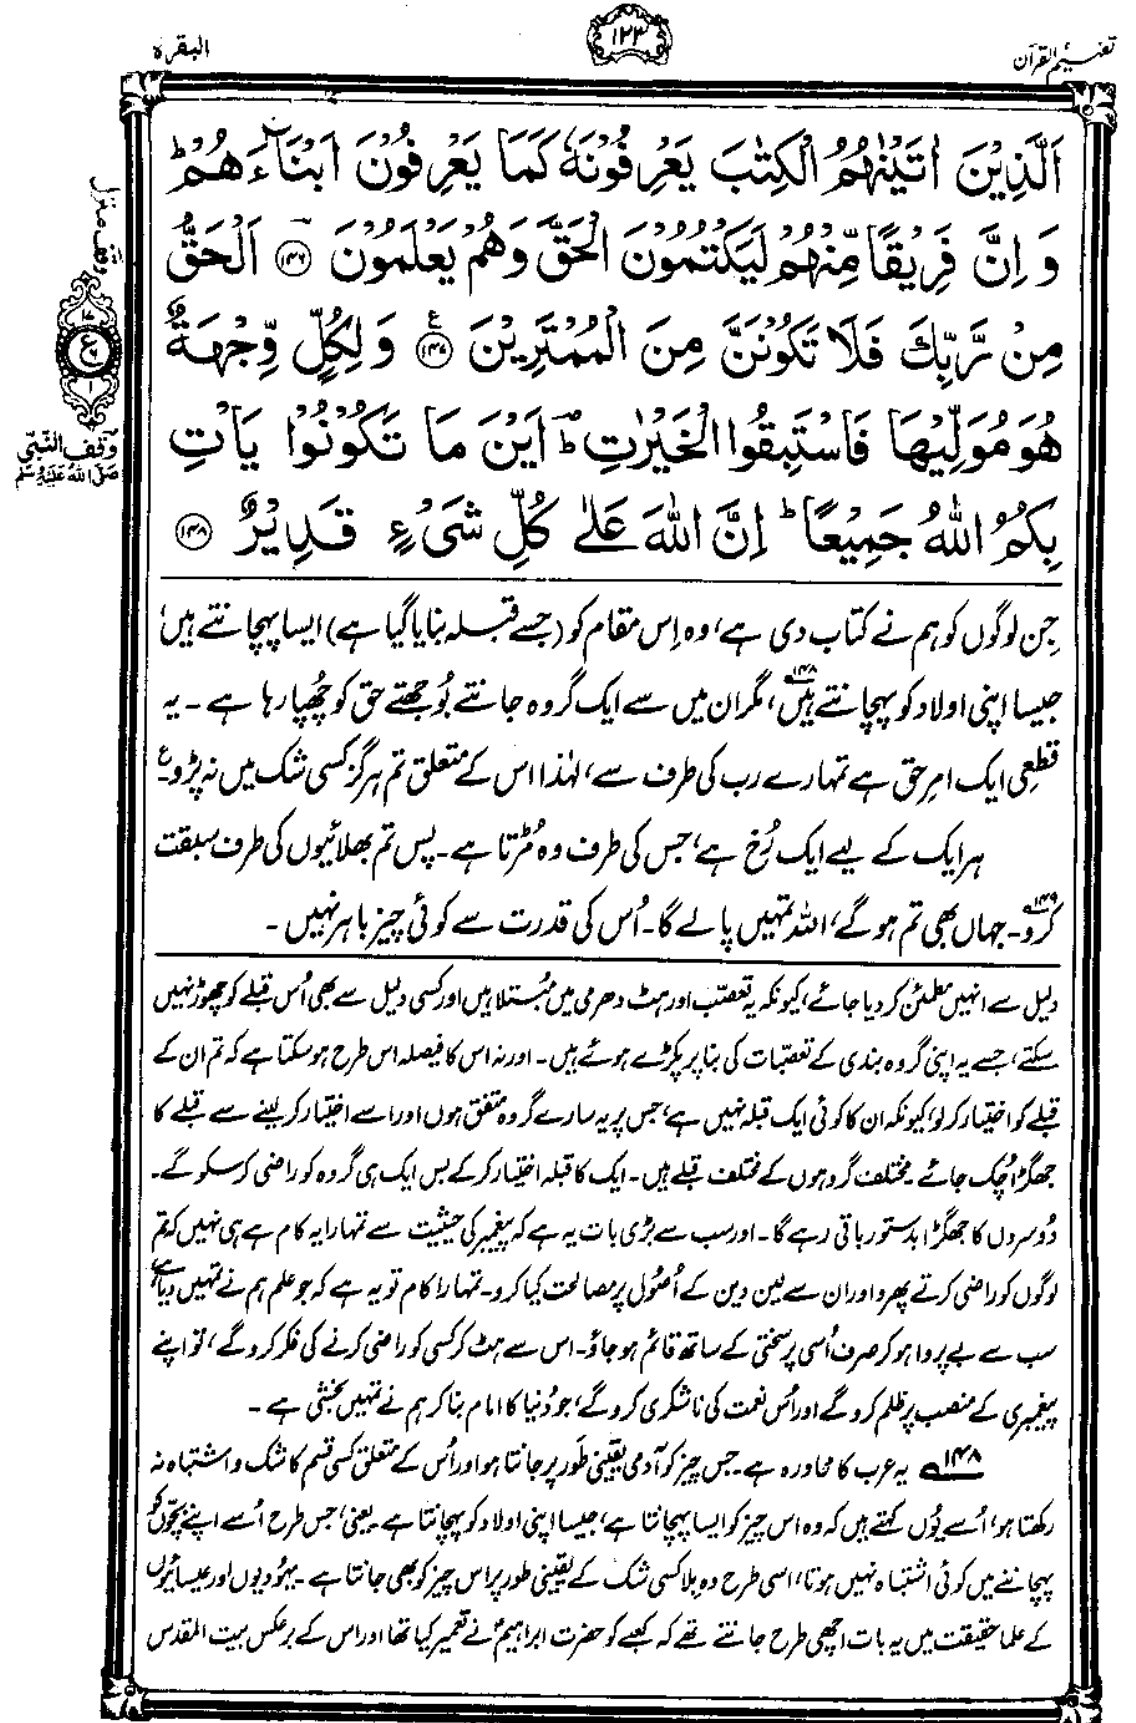 تفہیم القرآن
۱۲۳
البقرہ ۲
اَلَّذِیْنَ اٰتَیْنٰهُمُ الْكِتٰبَ یَعْرِفُوْنَهٗ كَمَا یَعْرِفُوْنَ اَبْنَآءَهُمْ ؕ
وَ اِنَّ فَرِیْقًا مِّنْهُمْ لَیَكْتُمُوْنَ الْحَقَّ وَ هُمْ یَعْلَمُوْنَ ﴿۱۴۶﴾ اَلْحَقُّ
مِنْ رَّبِّكَ فَلَا تَكُوْنَنَّ مِنَ الْمُمْتَرِیْنَ ﴿۱۴۷﴾ ع وَ لِكُلٍّ وِّجْهَةٌ
هُوَ مُوَلِّیْهَا فَاسْتَبِقُوا الْخَیْرٰتِ ؕ اَیْنَ مَا تَكُوْنُوْا یَاْتِ
بِكُمُ اللّٰهُ جَمِیْعًا ؕ اِنَّ اللّٰهَ عَلٰی كُلِّ شَیْءٍ قَدِیْرٌ ﴿۱۴۸﴾
وقف منزل
۱۷
ع
۱
وقف النبی
صلی اللہ علیہ وسلم
جن لوگوں کو ہم نے کتاب دی ہے، وہ اِس مقام کو (جسے قبلہ بنایا گیا ہے) ایسا پہچانتے ہیں،
جیسا اپنی اولاد کو پہچانتے ہیں۱۴۸، مگر ان میں سے ایک گروہ جانتے بُوجھتے حق کو چُھپا رہا ہے ۔ یہ
قطعی ایک امرِ حق ہے تمہارے رب کی طرف سے، لہٰذا اس کے متعلق تم ہرگز کسی شک میں نہ پڑو ۔ع
ہر ایک کے لیے ایک رُخ ہے، جس کی طرف وہ مُڑتا ہے ۔ پس تم بھلائیوں کی طرف سبقت
کرو۱۴۹ ۔ جہاں بھی تم ہو گے، اللہ تمہیں پا لے گا ۔ اُس کی قدرت سے کوئی چیز باہر نہیں ۔
دلیل سے انہیں مطمئن کر دیا جائے، کیونکہ یہ تعصّب اور ہٹ دھرمی میں مُبتلا ہیں اور کسی دلیل سے بھی اُس قبلے کو چھوڑ نہیں
سکتے، جسے یہ اپنی گروہ بندی کے تعصّبات کی بنا پر پکڑے ہوئے ہیں ۔ اور نہ اس کا فیصلہ اس طرح ہو سکتا ہے کہ تم ان کے
قبلے کو اختیار کر لو، کیونکہ ان کا کوئی ایک قبلہ نہیں ہے، جس پر یہ سارے گروہ متفق ہوں اور اسے اختیار کر لینے سے قبلے کا
جھگڑا چُک جائے ۔ مختلف گروہوں کے مختلف قبلے ہیں ۔ ایک کا قبلہ اختیار کر کے بس ایک ہی گروہ کو راضی کر سکو گے ۔
دُوسروں کا جھگڑا بدستور باقی رہے گا ۔ اور سب سے بڑی بات یہ ہے کہ پیغمبر کی حیثیت سے تمہارا یہ کام ہے ہی نہیں کہ تم
لوگوں کو راضی کرتے پھرو اور ان سے لین دین کے اُصُول پر مصالحت کیا کرو ۔ تمہارا کام تو یہ ہے کہ جو علم ہم نے تمہیں دیا ہے،
سب سے بے پروا ہو کر صرف اُسی پر سختی کے ساتھ قائم ہو جاؤ ۔ اس سے ہٹ کر کسی کو راضی کرنے کی فکر کرو گے، تو اپنے
پیغمبری کے منصب پر ظلم کرو گے اور اُس نعمت کی ناشکری کرو گے، جو دُنیا کا امام بنا کر ہم نے تمہیں بخشی ہے ۔
۱۴۸ے یہ عرب کا محاورہ ہے ۔ جس چیز کو آدمی یقینی طَور پر جانتا ہو اور اُس کے متعلق کسی قسم کا شک و اشتباہ نہ
رکھتا ہو، اُسے یُوں کہتے ہیں کہ وہ اس چیز کو ایسا پہچانتا ہے، جیسا اپنی اولاد کو پہچانتا ہے ۔ یعنی، جس طرح اُسے اپنے بچّوں کو
پہچاننے میں کوئی اشتباہ نہیں ہوتا، اسی طرح وہ بلا کسی شک کے یقینی طور پر اس چیز کو بھی جانتا ہے ۔ یہُودیوں اور عیسائیوں
کے علما حقیقت میں یہ بات اچھی طرح جانتے تھے کہ کعبے کو حضرت ابراہیمؑ نے تعمیر کیا تھا اور اس کے برعکس بیت المقدس